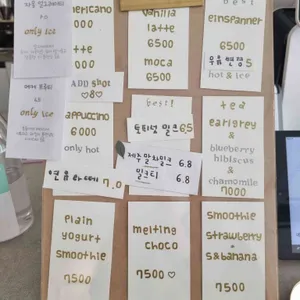 only ice
only ice
americano
7000
latte
6500
ADD shot
♡8♡
cappuccino
6000
only hot
연유 라떼 7.0
vanilla
latte
6500
moca
6500
best!
토티넛 밀크 6.5
제주 말차밀크 6.8
밀크티 6.8
best
einspanner
6500
hot & ice
tea
earlgrey
&
blueberry
hibiscus
&
chamomile
7000
plain
yogurt
smoothie
7500
melting
choco
7500 ♡
smoothie
strawberry
+
S&banana
7500